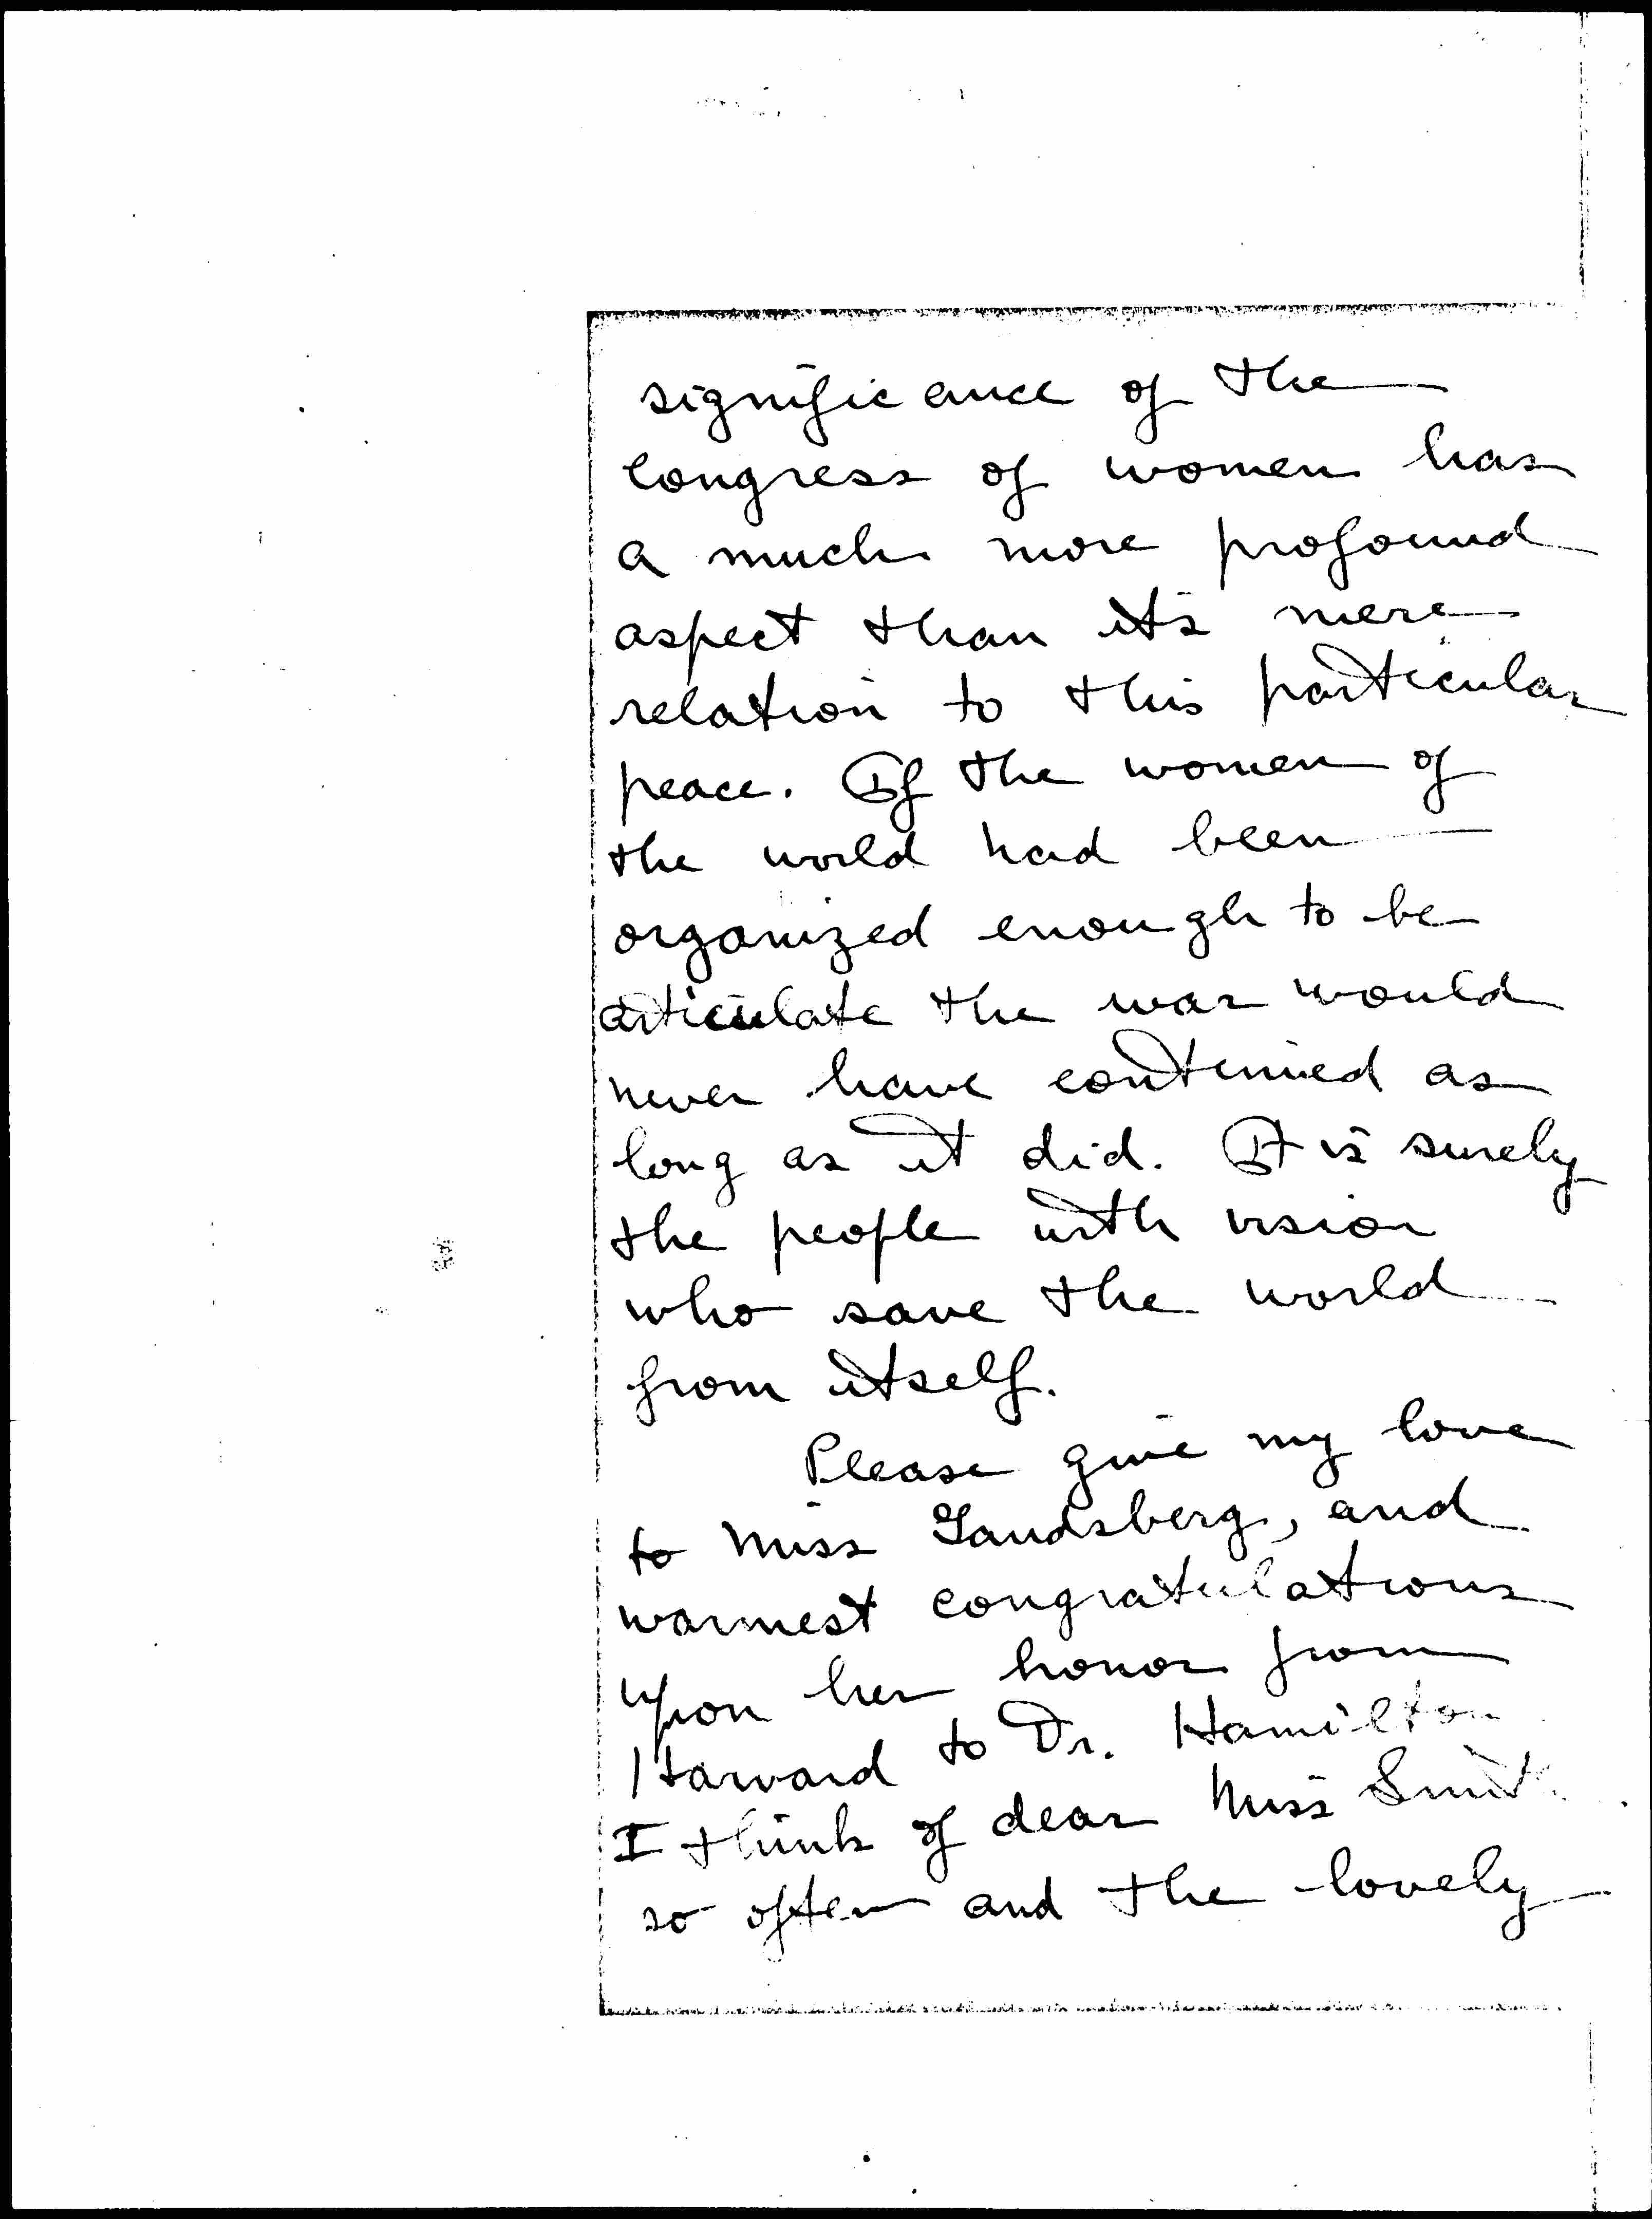 significance of the
Congress of women has
a much more profound
aspect than its mere
relation to this particular
peace. If the women of
the world had been
organized enough to be
articulate the war would
never have continued as
long as it did. It is surely
the people with vision
who save the world
from itself.
Please give my love
to Miss Landsberg, and
warmest congratulations
upon her honor from
Harvard to Dr. Hamilton
I think of dear Miss Smith
so often and the lovely